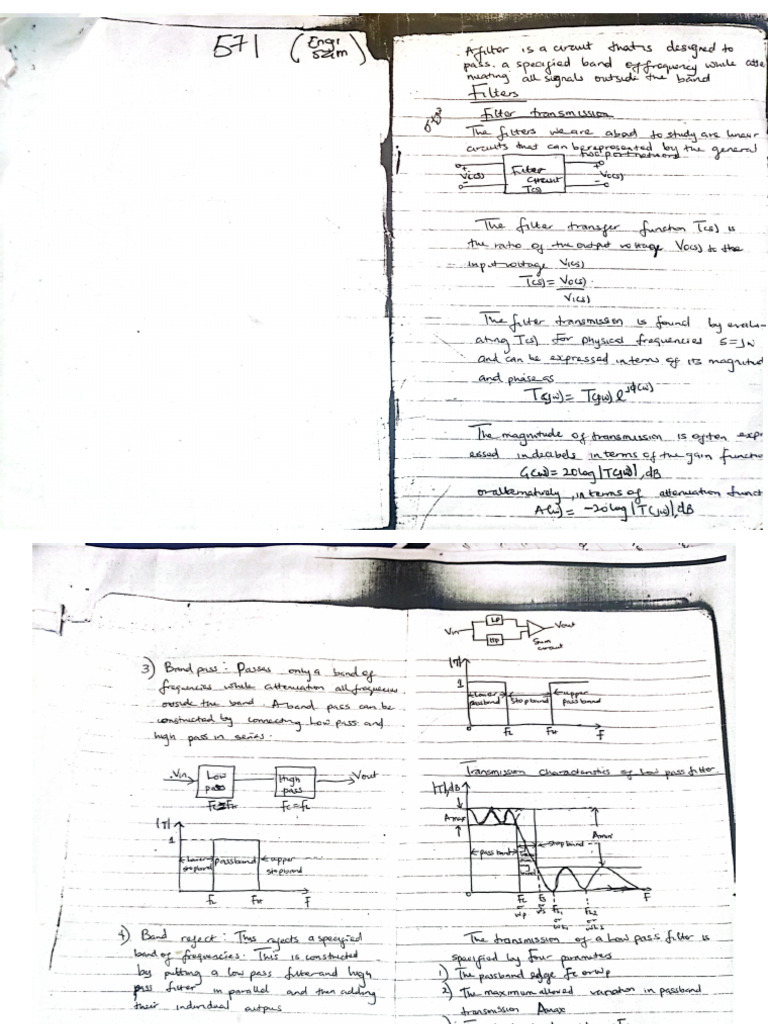 571 (Engr
Sam)
A filter is a circuit that is designed to
pass a specified band of frequency while atte
nuating all signals outside the band
Filters
Filter transmission
The filters we are about to study are linear
circuits that can be represented by the general
two port network
+
Vi(s)
-
Filter
circuit
T(s)
+
Vo(s)
-
The filter transfer function T(s) is
the ratio of the output voltage Vo(s) to the
input voltage Vi(s)
T(s) = Vo(s)
Vi(s)
The filter transmission is found by evalu-
ating T(s) for physical frequencies s=jw
and can be expressed interms of its magnitud
and phase as
T(jw) = T(jw) e^jφ(w)
The magnitude of transmission is often exp
essed in decibels in terms of the gain functio
G(w) = 20log |T(jw)|, dB
or alternatively, in terms of attenuation funct
A(w) = -20log |T(jw)|, dB
3) Band pass: Passes only a band of
frequencies while attenuation all frequencies
outside the band. A band pass can be
constructed by connecting low pass and
high pass in series.
Vin
Low
pass
High
pass
Vout
fc=fH
fc=fL
|T|
1
lower
stopband
passband
upper
stopband
fL
fH
f
4) Band reject: This rejects a specified
band of frequencies. This is constructed
by putting a low pass filter and high
pass filter in parallel and then adding
their individual outputs
Vin
LP
HP
Vout
Sum
circuit
|T|
1
lower
passband
stopband
upper
passband
0
fL
fH
f
Transmission Characteristics of low pass filter
|T|,dB
Amax
pass band
stop band
Amin
0
fc
wp
fs
ws
f
The transmission of a low pass filter is
specified by four parameters
1) The passband edge fc or wp
2) The maximum allowed variation in passband
transmission Amax